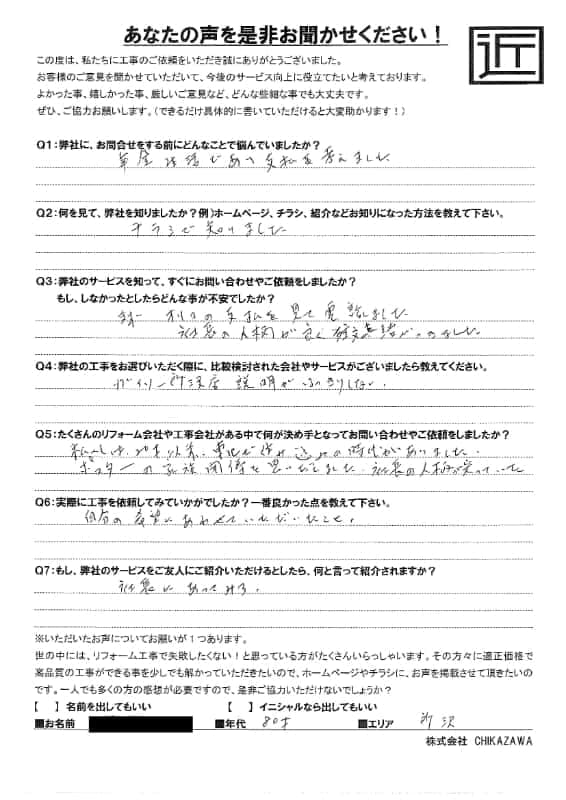 あなたの声を是非お聞かせください！
近
この度は、私たちに工事のご依頼をいただき誠にありがとうございました。
お客様のご意見を聞かせていただいて、今後のサービス向上に役立てたいと考えております。
よかった事、嬉しかった事、厳しいご意見など、どんな些細な事でも大丈夫です。
ぜひ、ご協力お願いします。（できるだけ具体的に書いていただけると大変助かります！）
Q1：弊社に、お問合せをする前にどんなことで悩んでいましたか？
支払を考えました
Q2：何を見て、弊社を知りましたか？例）ホームページ、チラシ、紹介などお知りになった方法を教えて下さい。
チラシで知りました
Q3：弊社のサービスを知って、すぐにお問い合わせやご依頼をしましたか？
もし、しなかったとしたらどんな事が不安でしたか？
の支払を見て電話しました
社長の人柄が良く
Q4：弊社の工事をお選びいただく際に、比較検討された会社やサービスがございましたら教えてください。
説明がはっきりしない
Q5：たくさんのリフォーム会社や工事会社がある中で何が決め手となってお問い合わせやご依頼をしましたか？
の時代がありました。
ポスターの家族関係を思いたてました 社長の人柄が
Q6：実際に工事を依頼してみていかがでしたか？一番良かった点を教えて下さい。
自分の希望にあわせていただいたこと。
Q7：もし、弊社のサービスをご友人にご紹介いただけるとしたら、何と言って紹介されますか？
社長にあってみろ。
※いただいたお声についてお願いが１つあります。
世の中には、リフォーム工事で失敗したくない！と思っている方がたくさんいらっしゃいます。その方々に適正価格で
高品質の工事ができる事を少しでも解かっていただきたいので、ホームページやチラシに、お声を掲載させて頂きたいの
です。一人でも多くの方の感想が必要ですので、是非ご協力いただけないでしょうか？
【　】名前を出してもいい　【　】イニシャルなら出してもいい
■お名前　■年代　80才　■エリア　所沢
株式会社 CHIKAZAWA